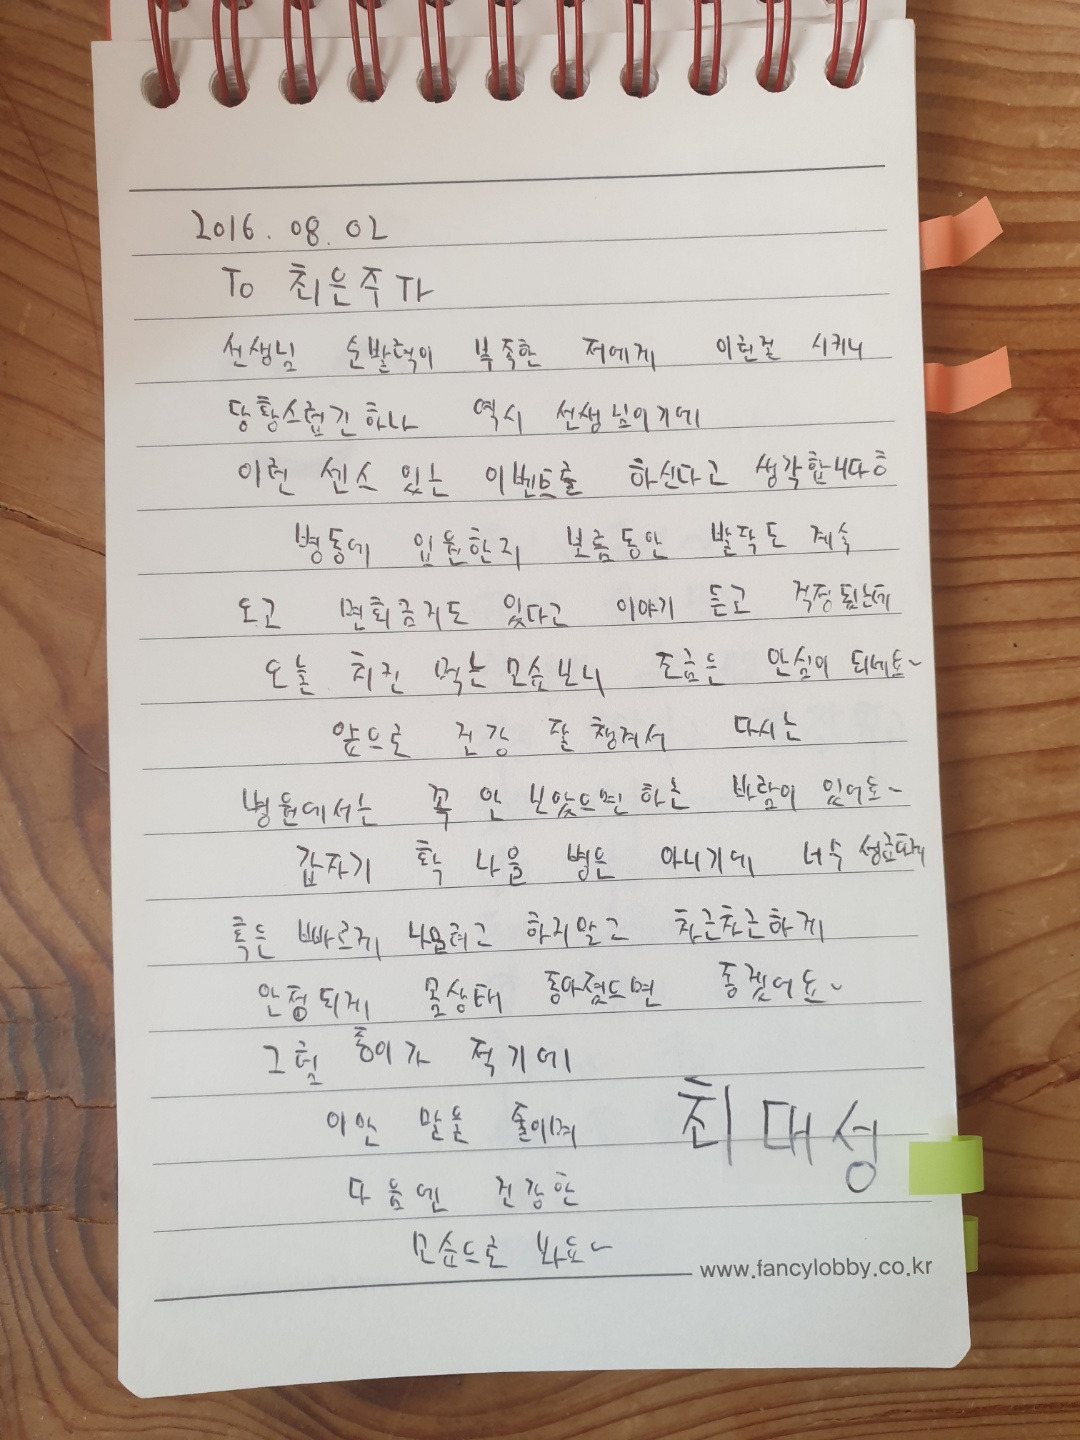 2016. 08. 02
To 최은주 자
선생님 순발력이 부족한 저에게 이런걸 시키니
당황스럽긴하나 역시 선생님이기에
이런 센스 있는 이벤트를 하신다고 생각합니다ㅎ
병동에 입원한지 보름동안 발작도 계속
오고 면회금지도 있다고 이야기 듣고 걱정됬는데
오늘 치킨 먹는모습보니 조금은 안심이 되네요~
앞으로 건강 잘 챙겨서 다시는
병원에서는 꼭 안 보았으면하는 바람이 있어요~
갑자기 확 나을 병은 아니기에 너무 성급하게
혹은 빠르게 나을려고 하지말고 차근차근하게
안정되게 몸상태 좋아졌으면 좋겠어요~
그럼 종이가 적기에
이만 말을 줄이며 최대성
다음엔 건강한
모습으로 봐요~
www.fancylobby.co.kr